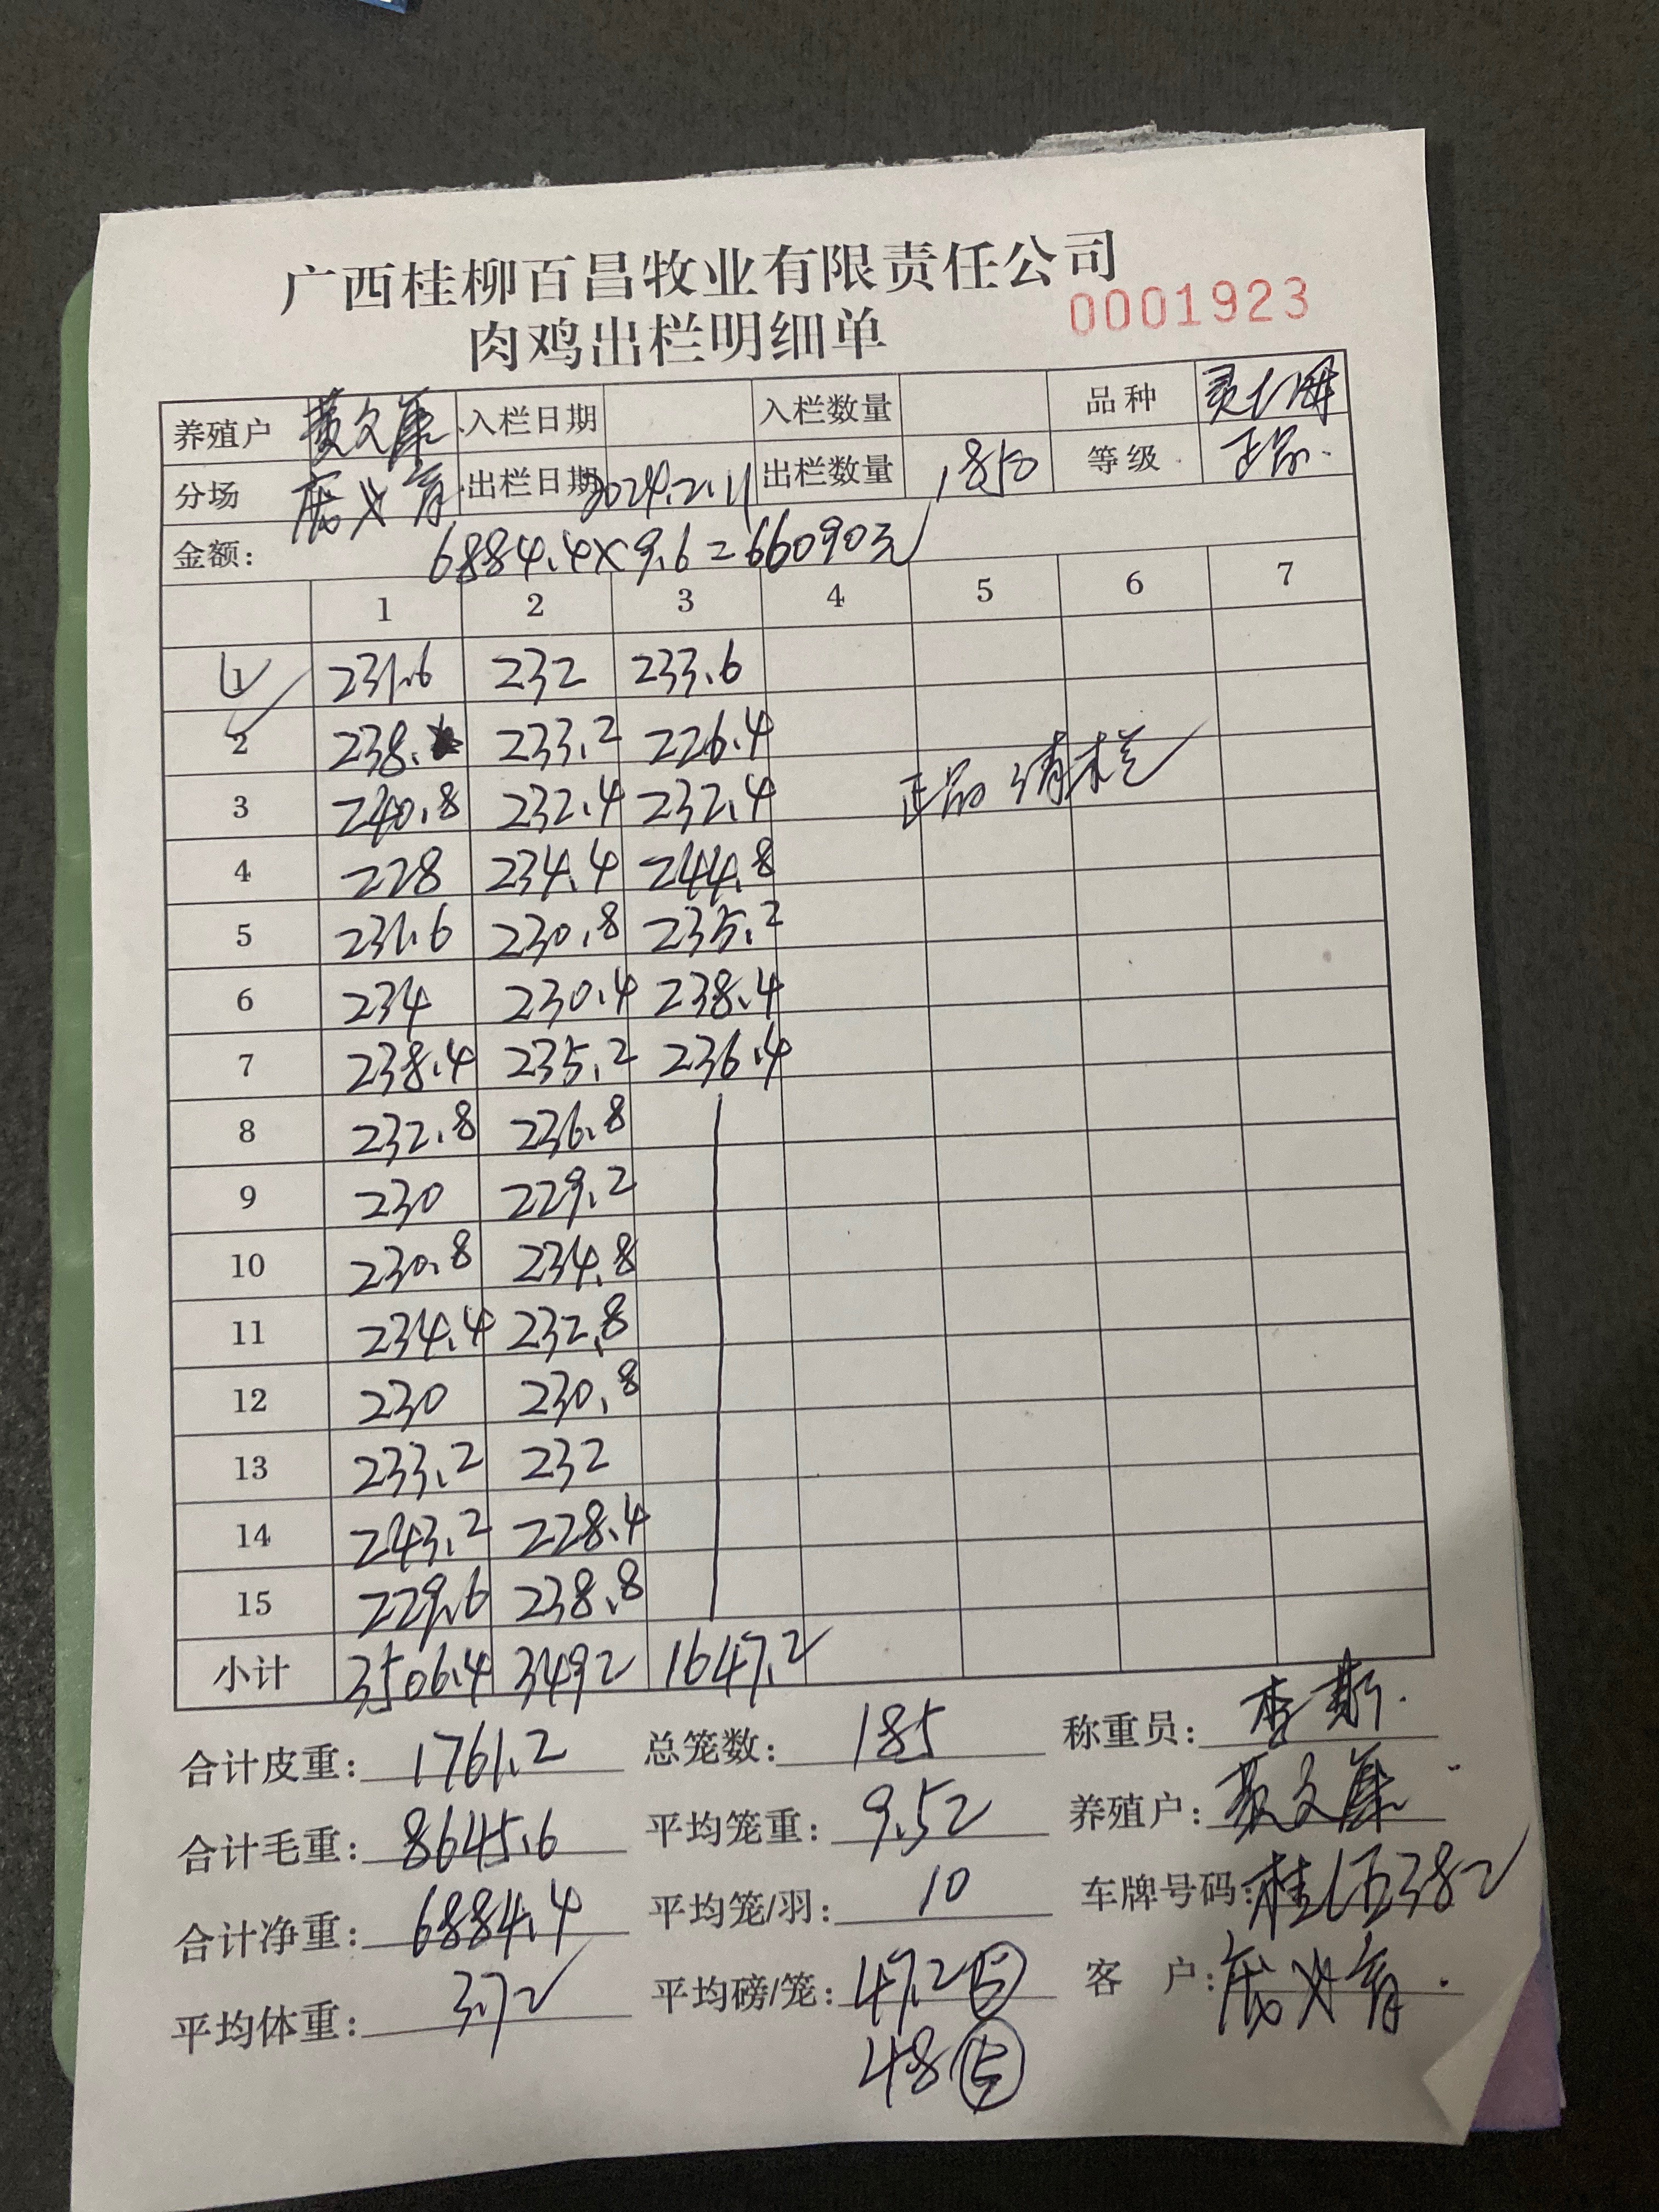 广西桂柳百昌牧业有限责任公司
肉鸡出栏明细单 0001923
养殖户 黄文 入栏日期 入栏数量 品种
分场 出栏日期 2024.2.11 出栏数量 1850 等级 正品.
金额: 6884.4×9.6=66090元
1 2 3 4 5 6 7
1 231.6 232 233.6
2 238. 233.2 226.4
3 240.8 232.4 232.4 正品 清栏
4 228 234.4 244.8
5 231.6 230.8 235.2
6 234 230.4 238.4
7 238.4 235.2 236.4
8 232.8 236.8
9 230 229.2
10 230.8 234.8
11 234.4 232.8
12 230 230.8
13 233.2 232
14 243.2 228.4
15 229.6 238.8
小计 3506.4 3492 1647.2
合计皮重: 1761.2 总笼数: 185 称重员: 李
合计毛重: 8645.6 平均笼重: 9.52 养殖户: 黄文
合计净重: 6884.4 平均笼/羽: 10 车牌号码: 桂
平均体重: 3.72 平均磅/笼: 47.2⑤ 客 户:
48⑤